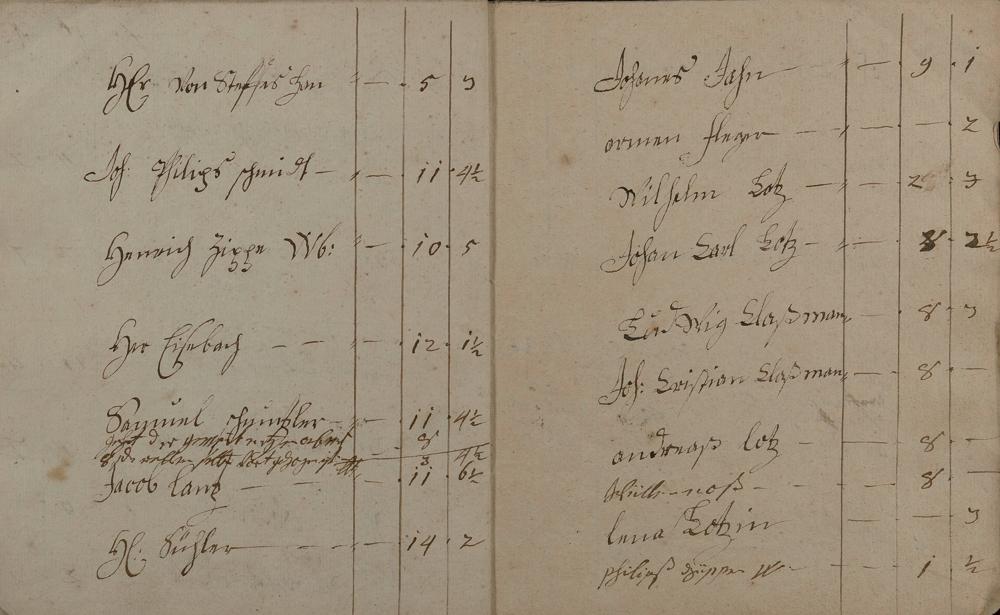 HEr Von Steffis han " — 5 3
Joh: Philips schmidt — " — 11 4½
Henrich Zippe Wb: " — 10 5
Her Eisebach — — — " — 12 1½
Samuel schuntzler — " — 11 4½
8
3 4½
Jacob lantz — — 11 6½
H: Bühler — — — 14 2
Johanes Jahn — " — 9 1
ormen — " — — 2
Wilhelm Lotz — " — 2 3
Johan Carl Lotz — " — 8 2½
LudWig Claßman — 8 3
Joh: Cristian Claßman — 8 —
andreaß lotz — — 8 —
— — 8 —
lena Lotzin — — 3
philipß W — — 1 ½